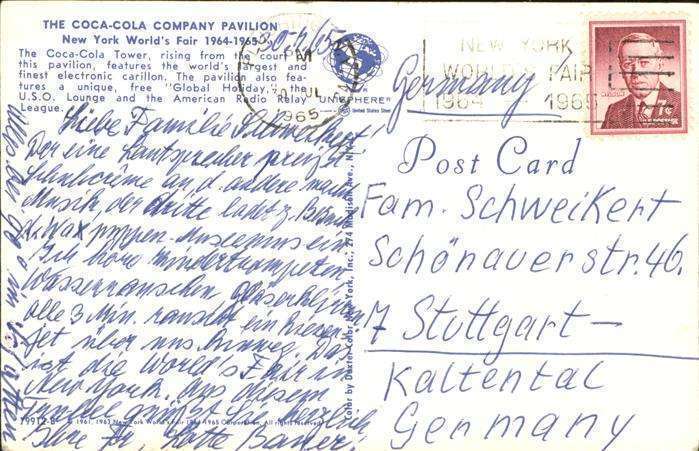 THE COCA-COLA COMPANY PAVILION
New York World's Fair 1964-1965
The Coca-Cola Tower, rising from the court of
this pavilion, features the world's largest and
finest electronic carillon. The pavilion also fea-
tures a unique, free "Global Holiday," the
U.S.O. Lounge and the American Radio Relay
League.
UNISPHERE
30.7.65
JUL
1965
NEW YORK
WORLD'S FAIR
1964 1965
7¢
Germany
Liebe Familie Schweikert!
Der eine Lautsprecher preist
an, d. andere macht
Musik, der dritte ladet z. 
Wax puppen-museums ein.
Ich höre Kindertrompeten,
Wasserrauschen,
alle 3 Min. rauscht ein
Jet über uns hinweg. Das
ist die World's Fair in
New York. Aus diesem
Trubel grüßt Sie herzlich
Ihre Lotte Bauer
Post Card
Fam. Schweikert
Schönauerstr. 46.
7 Stuttgart-
Kaltental
Germany
Color by Dexter Color New York, Inc., 274 Madison Ave., N.Y.
79912-B © 1961, 1963 New York World's Fair 1964-1965 Corporation. All rights reserved